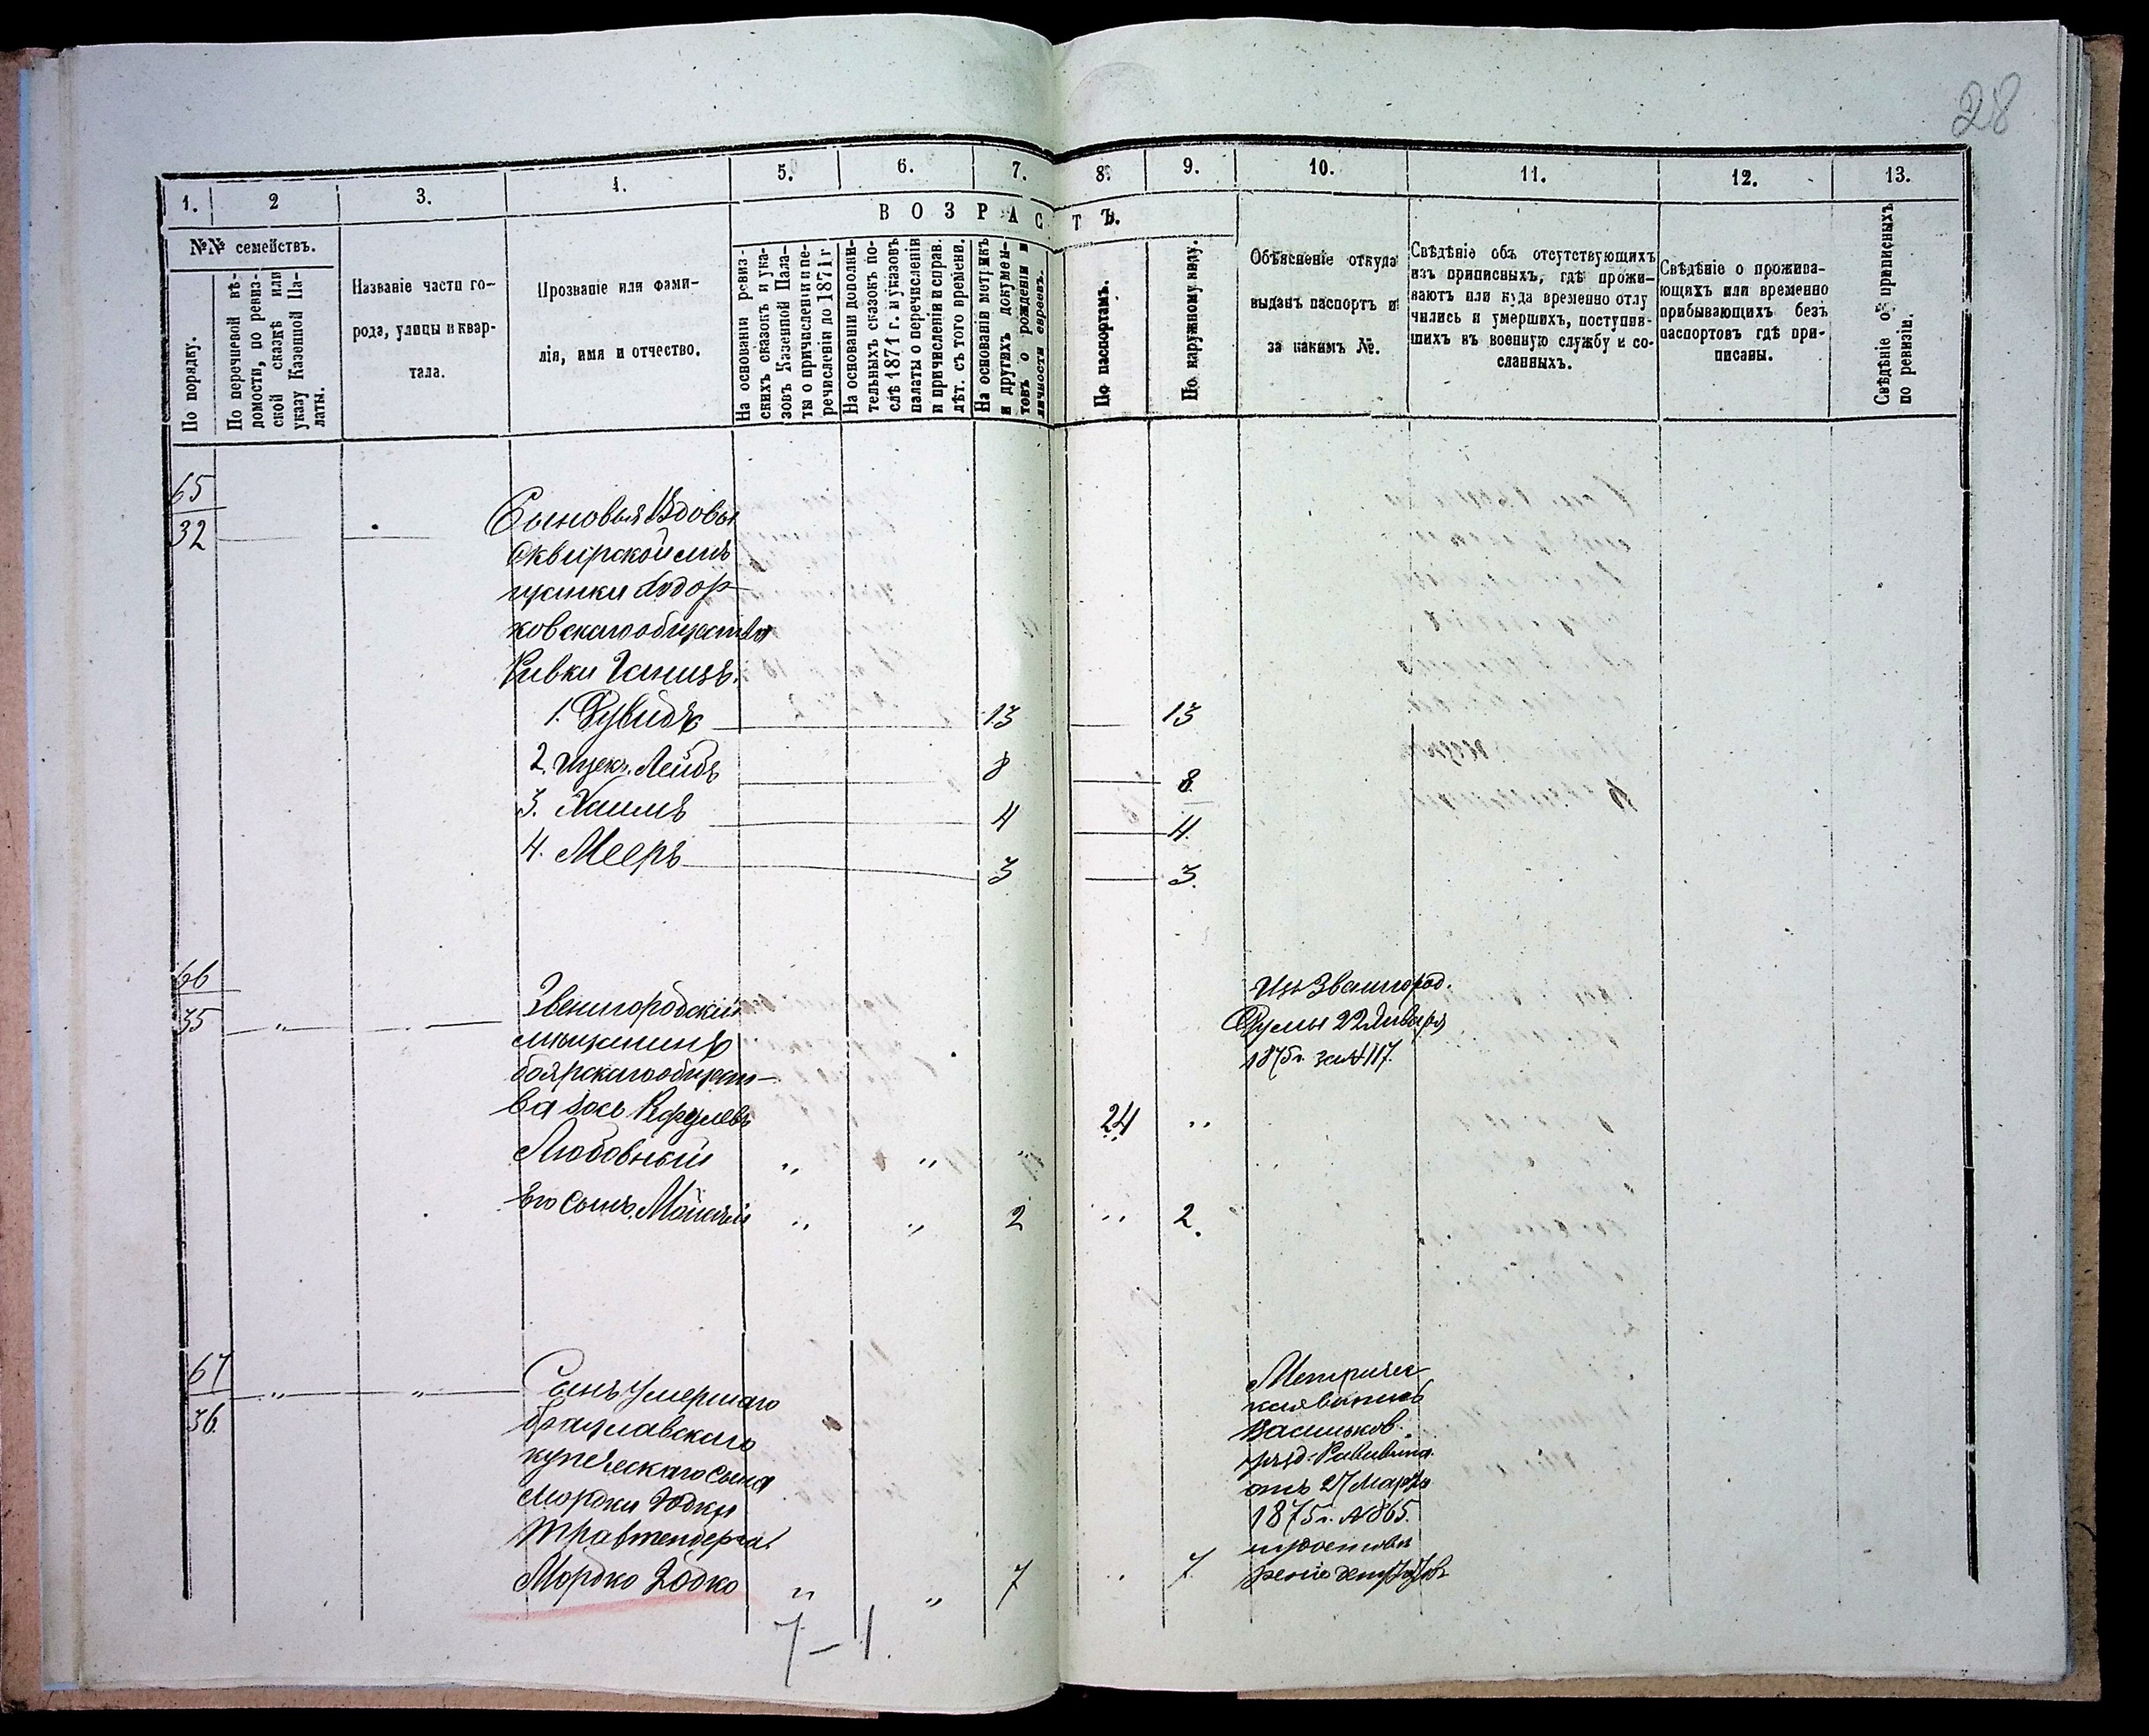 28
1. 2 3. 4. 5. 6. 7. 8. 9. 10. 11. 12. 13.
ВОЗРАСТЪ.
№№ семействъ.
По порядку.
По перечневой вѣ-
домости, по ревиз-
ской сказкѣ или
указу Казенной Па-
латы.
Названіе части го-
рода, улицы и квар-
тала.
Прозваніе или фами-
лія, имя и отчество.
На основаніи ревиз-
скихъ сказокъ и ука-
зовъ Казенной Пала-
ты о причисленіи и пе-
речисленіи до 1871 г
На основаніи дополни-
тельныхъ сказокъ по-
слѣ 1871 г. и указовъ
палаты о перечисленіи
и причисленіи и справ.
лѣт. съ того времени.
На основаніи метрикъ
и другихъ докумен-
товъ о рожденіи и
личности евреевъ.
По паспортамъ.
По наружному виду.
Объясненіе откуда
выданъ паспортъ и
за какимъ №.
Свѣдѣніе объ отсутствующихъ
изъ приписныхъ, гдѣ прожи-
ваютъ или куда временно отлу
чились и умершихъ, поступив-
шихъ въ военную службу и со-
сланныхъ.
Свѣдѣніе о прожива-
ющихъ или временно
прибывающихъ безъ
паспортовъ гдѣ при-
писаны.
Свѣдѣніе объ приписныхъ
по ревизіи.
65
32
Сыновья Вдовы
Сквирской мѣ
щанки Ходор
ковскаго общества
Ривки Ганицъ.
1. Дувидъ 13 13
2. Ицекъ Лейбъ 8 8.
3. Хаимъ 4 4.
4. Мееръ 3 3.
66
35
Звенигородскій
мѣщанинъ
боярскаго общест-
ва Іось Рефулевъ 24 "
Любовный " " "
Его сынъ Мошкій " " 2 " 2.
Изъ Звенигород.
Думы 22 Января
1875 г. за № 117.
67
36.
Сынъ умершаго
брацлавскаго
купеческаго сына
Мордки Іодки
Травтенберга
Мордко Іодко " " 7 " 7
Метричес
кая выпись
Васильков.
уѣзд. Раввина
отъ 27 Марта
1875 г. № 865.
7–1.